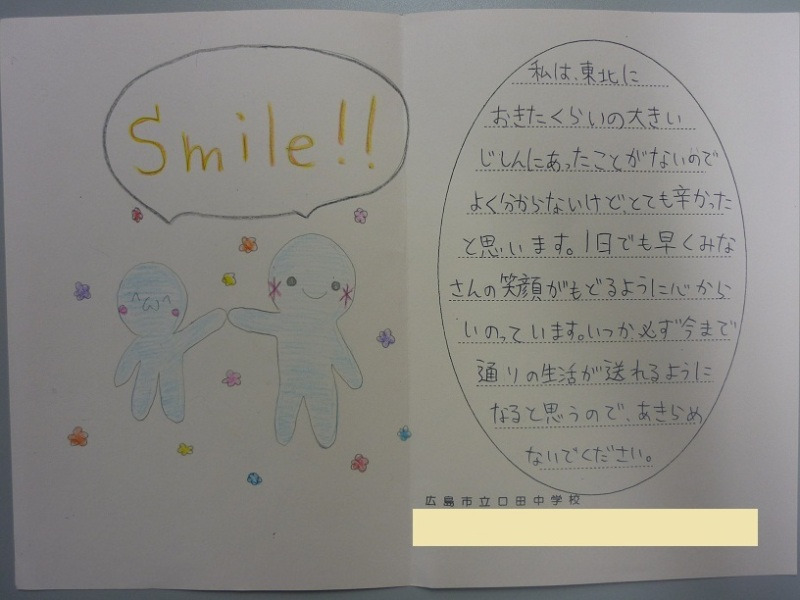 Smile!!
私は、東北に
おきたくらいの大きい
じしんにあったことがないので
よく分からないけど、とても辛かった
と思います。1日でも早くみな
さんの笑顔がもどるように心から
いのっています。いつか必ず今まで
通りの生活が送れるように
なると思うので、あきらめ
ないでください。
広島市立口田中学校